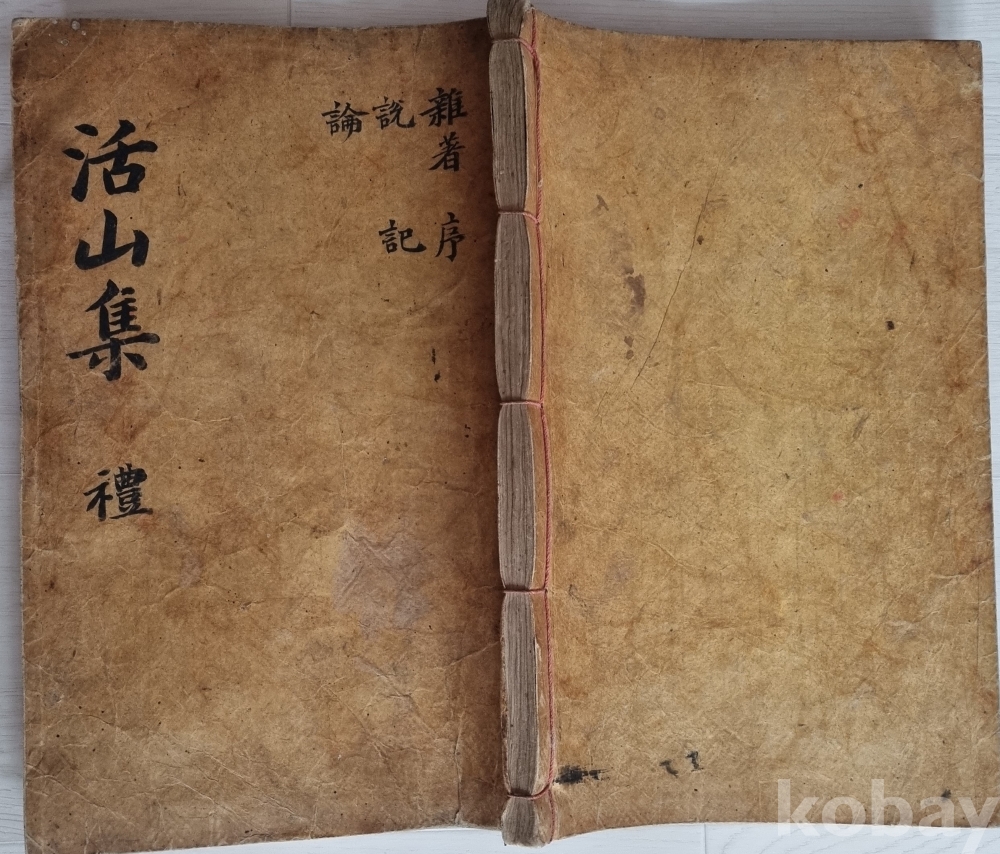 雜著 序
說 記
論
活山集 禮
kobay